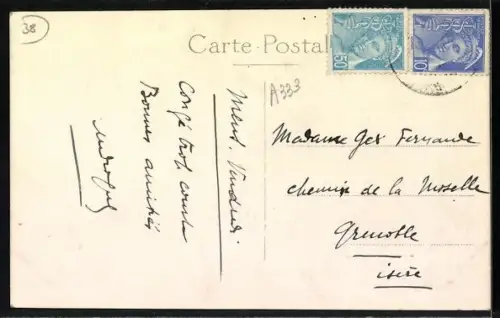 38
Carte Postale
50
10
A333
Ment. Vendredi
Congé trop court
Bonnes amitiés
Madame Gex Fernande
chemin de la Moselle
Grenoble
isère